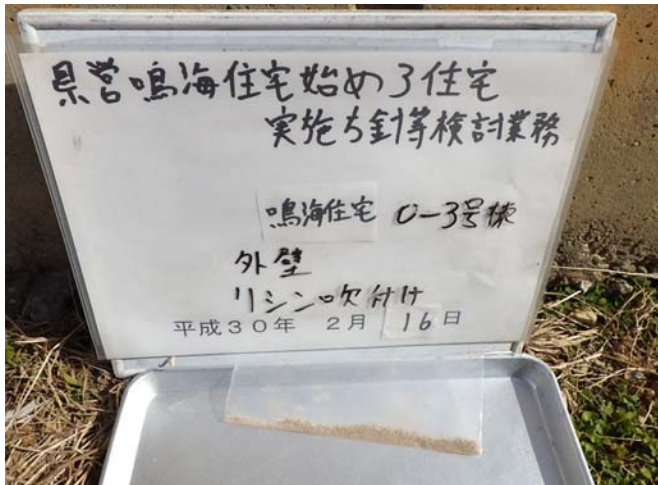 県営鳴海住宅始め3住宅
実施方針等検討業務
鳴海住宅 0-3号棟
外壁
リシン吹付け
平成30年 2月 16日